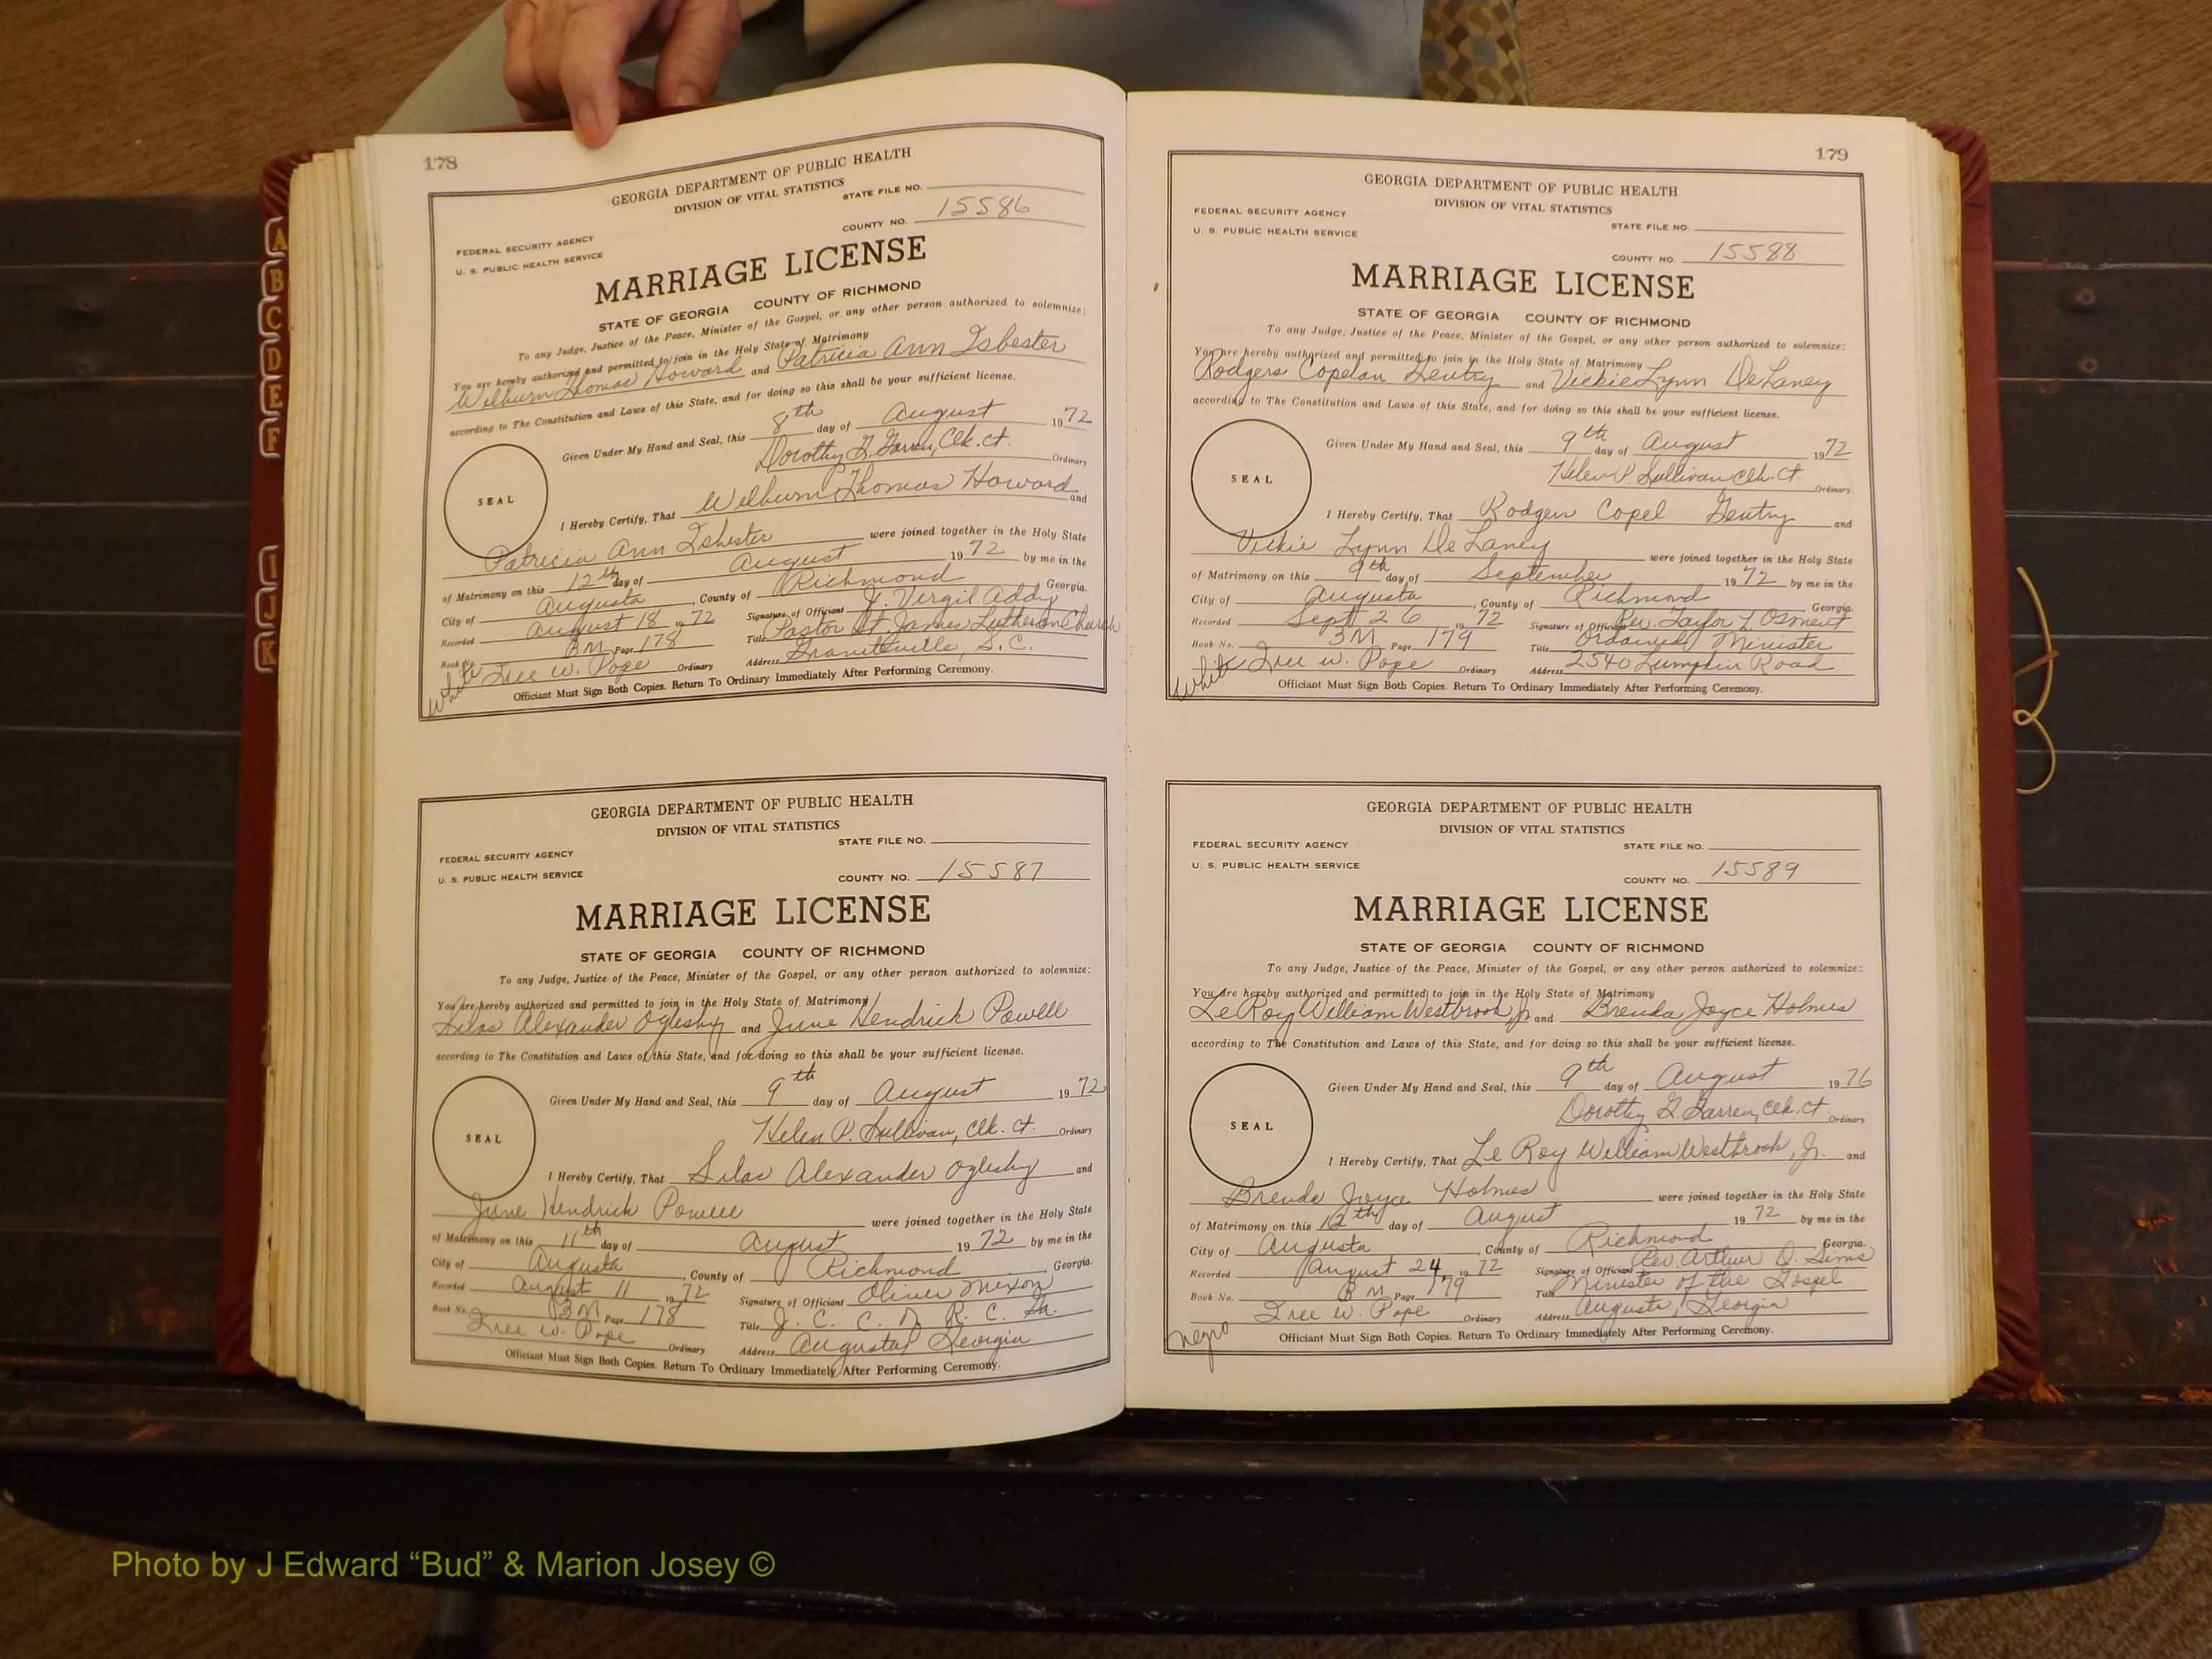 178
GEORGIA DEPARTMENT OF PUBLIC HEALTH
DIVISION OF VITAL STATISTICS
STATE FILE NO.
COUNTY NO. 15586
FEDERAL SECURITY AGENCY
U. S. PUBLIC HEALTH SERVICE
MARRIAGE LICENSE
STATE OF GEORGIA COUNTY OF RICHMOND
To any Judge, Justice of the Peace, Minister of the Gospel, or any other person authorized to solemnize:
You are hereby authorized and permitted to join in the Holy State of Matrimony
Wilburn Thomas Howard and Patricia Ann Isbester
according to The Constitution and Laws of this State, and for doing so this shall be your sufficient license.
Given Under My Hand and Seal, this 8th day of August 1972
Dorothy G. Garren, Clk. Ct. Ordinary
SEAL
I Hereby Certify, That Wilburn Thomas Howard and
Patricia Ann Isbester were joined together in the Holy State
of Matrimony on this 12th day of August 1972 by me in the
City of Augusta, County of Richmond Georgia.
Recorded August 18 1972 Signature of Officiant J. Virgil Addy
Book No. 3M Page 178 Title Pastor St. James Lutheran Church
Ordinary Address Graniteville, S.C.
White
Officiant Must Sign Both Copies. Return To Ordinary Immediately After Performing Ceremony.
GEORGIA DEPARTMENT OF PUBLIC HEALTH
DIVISION OF VITAL STATISTICS
STATE FILE NO.
FEDERAL SECURITY AGENCY
U. S. PUBLIC HEALTH SERVICE
COUNTY NO. 15587
MARRIAGE LICENSE
STATE OF GEORGIA COUNTY OF RICHMOND
To any Judge, Justice of the Peace, Minister of the Gospel, or any other person authorized to solemnize:
You are hereby authorized and permitted to join in the Holy State of Matrimony
Silas Alexander Oglesby and June Hendrick Powell
according to The Constitution and Laws of this State, and for doing so this shall be your sufficient license.
Given Under My Hand and Seal, this 9th day of August 1972
Helen P. Sullivan, Clk. Ct. Ordinary
SEAL
I Hereby Certify, That Silas Alexander Oglesby and
June Hendrick Powell were joined together in the Holy State
of Matrimony on this 11th day of August 1972 by me in the
City of Augusta, County of Richmond Georgia.
Recorded August 11 1972 Signature of Officiant Oliver Mixon
Book No. 3M Page 178 Title J. C. C. R. C. Ga.
Ordinary Address Augusta, Georgia
Officiant Must Sign Both Copies. Return To Ordinary Immediately After Performing Ceremony.
179
GEORGIA DEPARTMENT OF PUBLIC HEALTH
DIVISION OF VITAL STATISTICS
FEDERAL SECURITY AGENCY
U. S. PUBLIC HEALTH SERVICE
STATE FILE NO.
COUNTY NO. 15588
MARRIAGE LICENSE
STATE OF GEORGIA COUNTY OF RICHMOND
To any Judge, Justice of the Peace, Minister of the Gospel, or any other person authorized to solemnize:
You are hereby authorized and permitted to join in the Holy State of Matrimony
Rodgers Copelan Gentry and Vickie Lynn DeLaney
according to The Constitution and Laws of this State, and for doing so this shall be your sufficient license.
Given Under My Hand and Seal, this 9th day of August 1972
Helen P. Sullivan Clk. Ct. Ordinary
SEAL
I Hereby Certify, That Rodgers Copel Gentry and
Vickie Lynn DeLaney were joined together in the Holy State
of Matrimony on this 9th day of September 1972 by me in the
City of Augusta, County of Richmond Georgia.
Recorded Sept 26 1972 Signature of Officiant Rev. Taylor L. Osment
Book No. 3M Page 179 Title Ordained Minister
Ordinary Address 2540 Lumpkin Road
White
Officiant Must Sign Both Copies. Return To Ordinary Immediately After Performing Ceremony.
GEORGIA DEPARTMENT OF PUBLIC HEALTH
DIVISION OF VITAL STATISTICS
FEDERAL SECURITY AGENCY
U. S. PUBLIC HEALTH SERVICE
STATE FILE NO.
COUNTY NO. 15589
MARRIAGE LICENSE
STATE OF GEORGIA COUNTY OF RICHMOND
To any Judge, Justice of the Peace, Minister of the Gospel, or any other person authorized to solemnize:
You are hereby authorized and permitted to join in the Holy State of Matrimony
Le Roy William Westbrook, Jr. and Brenda Joyce Holmes
according to The Constitution and Laws of this State, and for doing so this shall be your sufficient license.
Given Under My Hand and Seal, this 9th day of August 1976
Dorothy G. Garren, Clk. Ct. Ordinary
SEAL
I Hereby Certify, That Le Roy William Westbrook, Jr. and
Brenda Joyce Holmes were joined together in the Holy State
of Matrimony on this 12th day of August 1972 by me in the
City of Augusta, County of Richmond Georgia.
Recorded August 24 1972 Signature of Officiant Rev. Arthur D. Sims
Book No. 3M Page 179 Title Minister of the Gospel
Ordinary Address Augusta, Georgia
Negro
Officiant Must Sign Both Copies. Return To Ordinary Immediately After Performing Ceremony.
A
B
C
D
E
F
I
J
K
Photo by J Edward “Bud” & Marion Josey ©